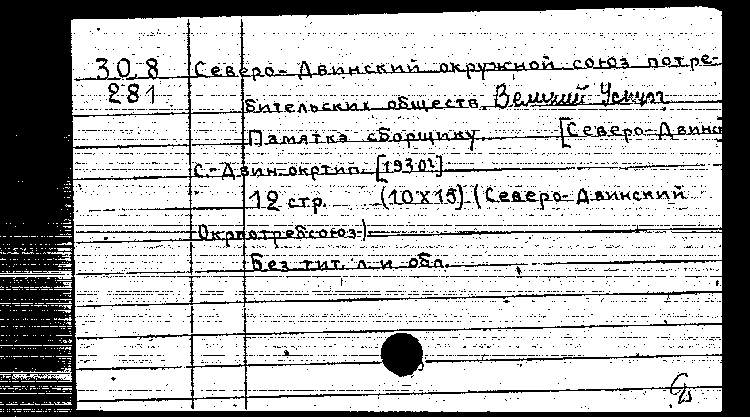 30.8
281
Северо-Двинский окружной союз потре-
бительских обществ. Великий Устюг
Памятка сборщику. [Северо-Двинс
С.-Двин. окртип. [1930?]
12 стр. (10х15) (Северо-Двинский
Окрпотребсоюз)
Без тит. л. и обл.